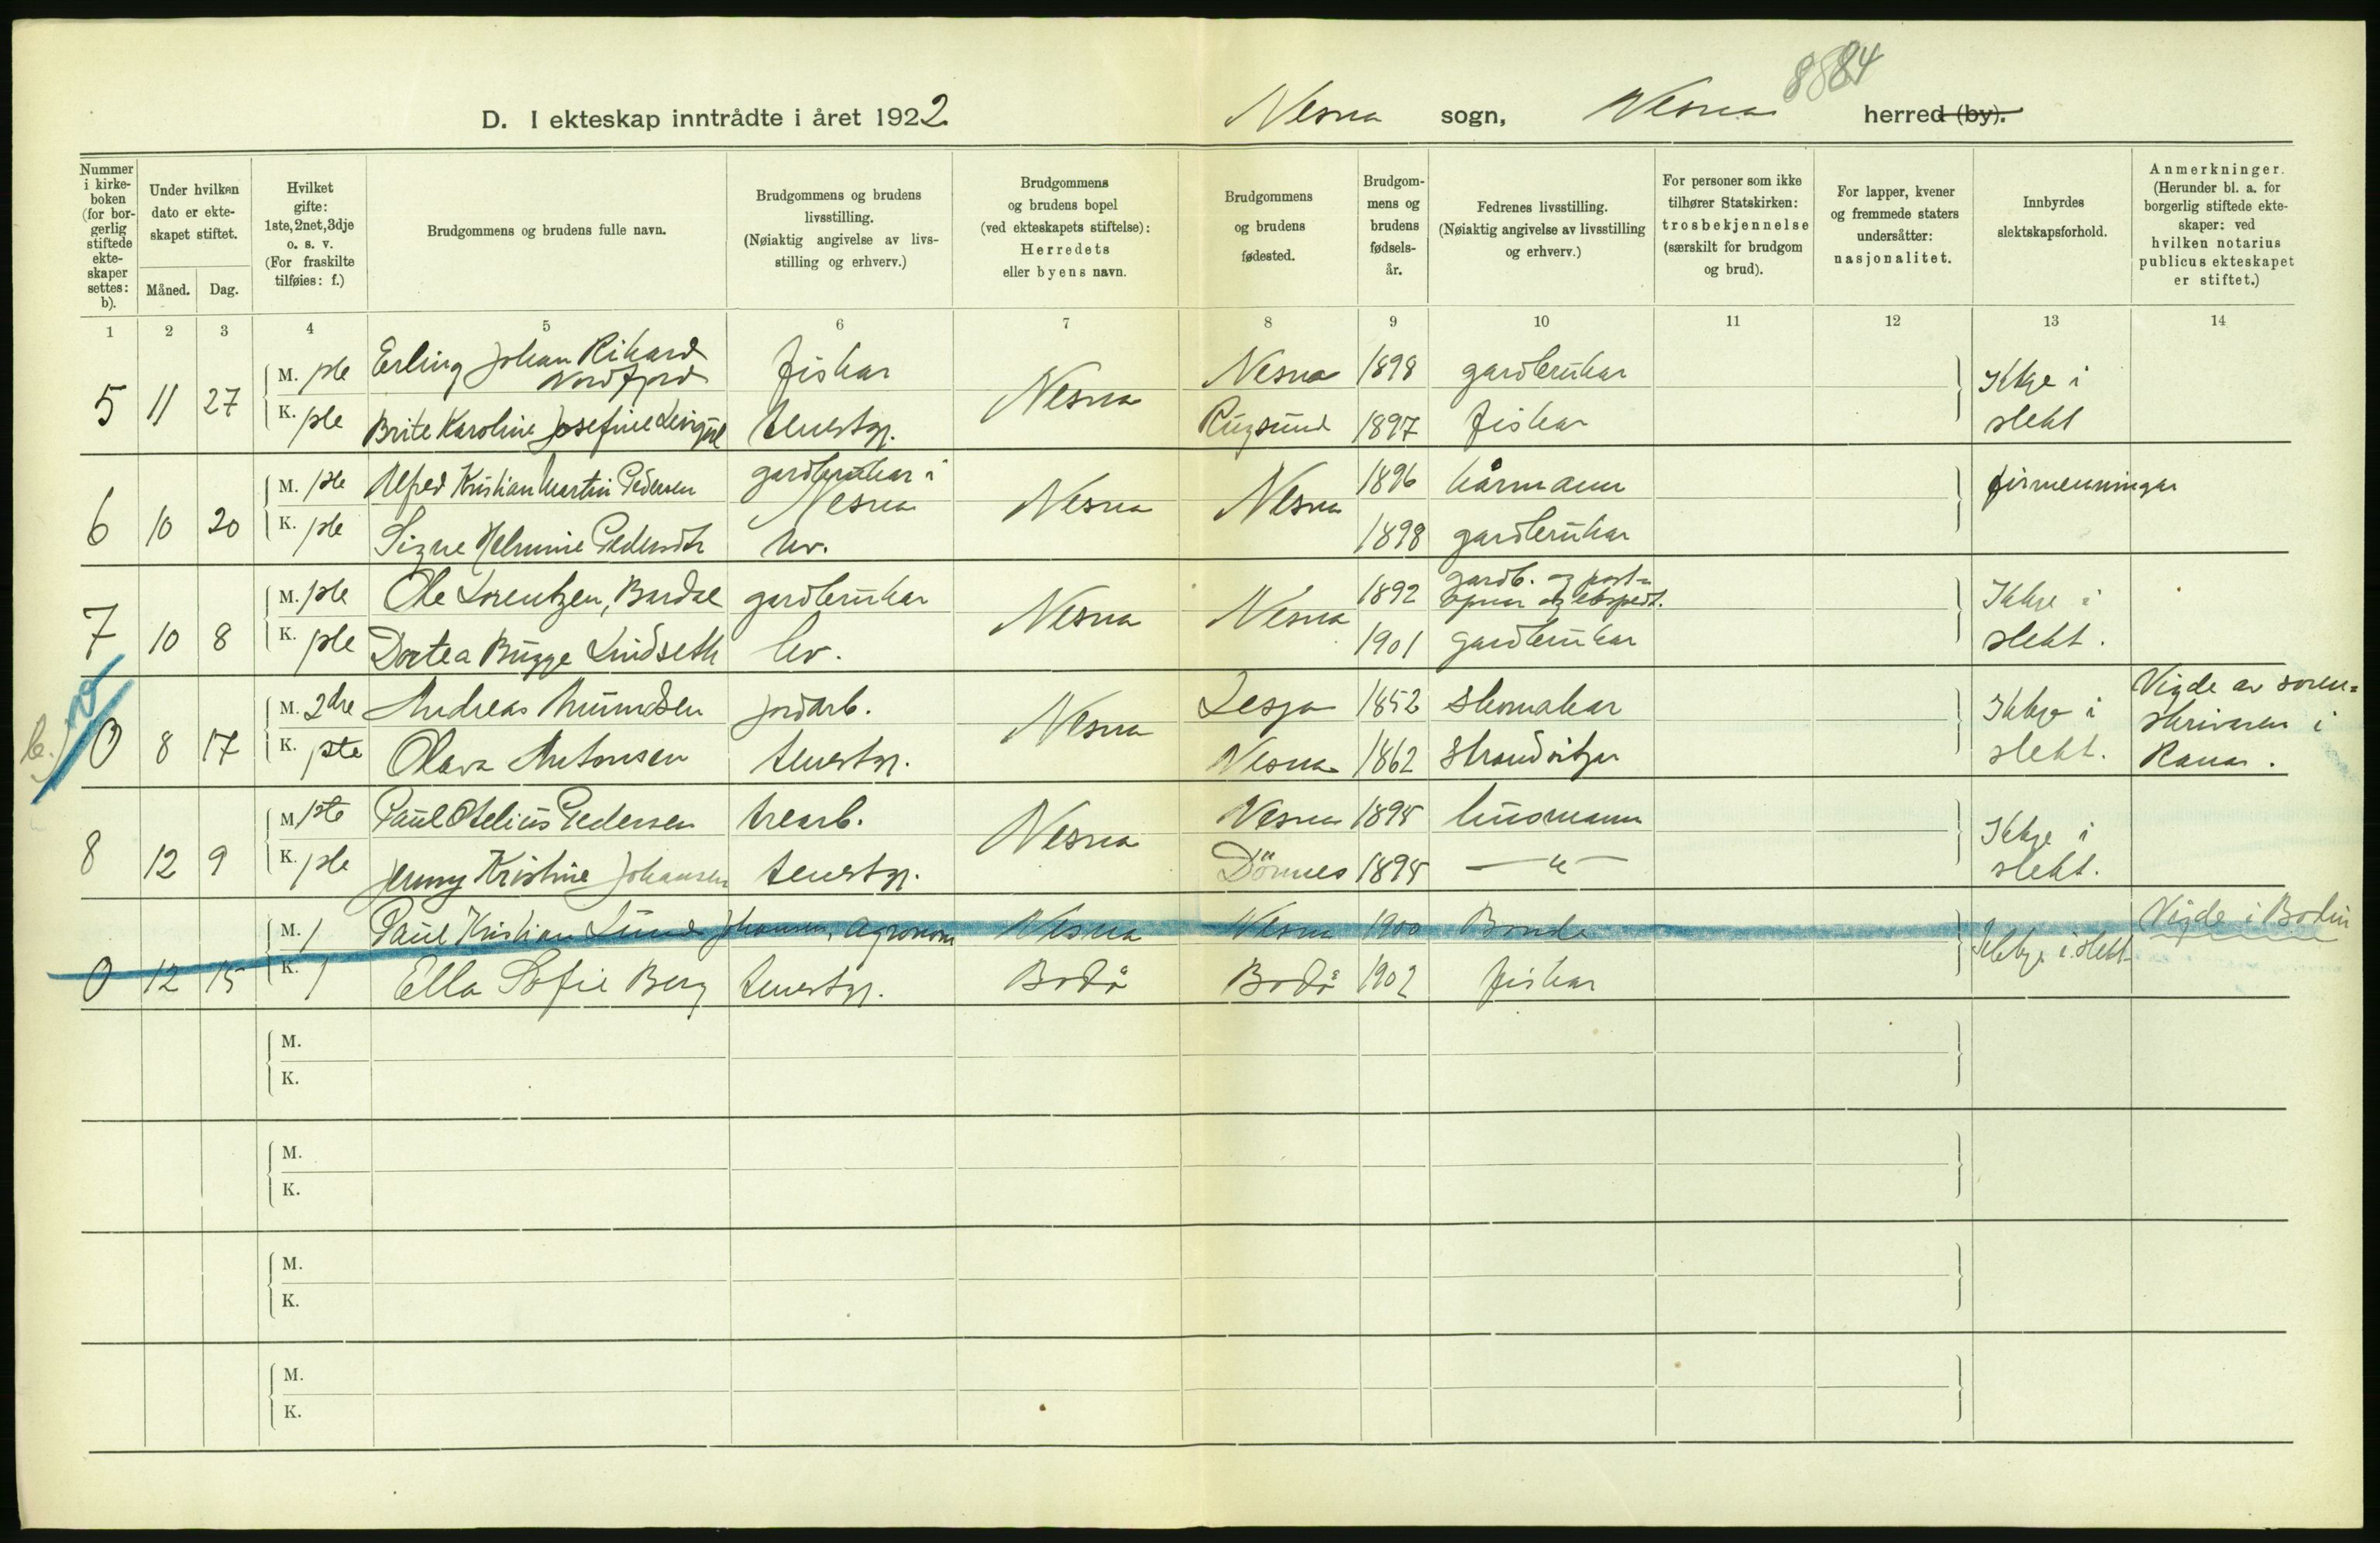 8884
D. I ekteskap inntrådte i året 1922 Nesna sogn, Nesna herred (by).
Nummer i kirke- boken (for bor- gerlig stiftede ekte- skaper settes: b).
Under hvilken dato er ekte- skapet stiftet.
Måned. Dag.
Hvilket gifte: 1ste, 2net, 3dje o. s. v. (For fraskilte tilføies: f.)
Brudgommens og brudens fulle navn.
Brudgommens og brudens livsstilling. (Nøiaktig angivelse av livs- stilling og erhverv.)
Brudgommens og brudens bopel (ved ekteskapets stiftelse): Herredets eller byens navn.
Brudgommens og brudens fødested.
Brudgom- mens og brudens fødsels- år.
Fedrenes livsstilling. (Nøiaktig angivelse av livsstilling og erhverv.)
For personer som ikke tilhører Statskirken: trosbekjennelse (særskilt for brudgom og brud).
For lapper, kvener og fremmede staters undersåtter: nasjonalitet.
Innbyrdes slektskapsforhold.
Anmerkninger. (Herunder bl. a. for borgerlig stiftede ekte- skaper: ved hvilken notarius publicus ekteskapet er stiftet.)
1 2 3 4 5 6 7 8 9 10 11 12 13 14
5 11 27 M. 1ste Erling Johan Rikard Nordfjord fiskar Nesna Nesna 1898 gardbrukar Ikkje i slekt
K. 1ste Brite Karoline Josefine tenestgj. Rugsund 1897 fiskar
6 10 20 M. 1ste Alfred Kristian Martin Pedersen gardbrukar i Nesna Nesna Nesna 1896 kårmann firmenningar
K. 1ste Signe Helmine Pedersdtr hv. 1898 gardbrukar
7 10 8 M. 1ste Ole Lorentzen, Bardal gardbrukar Nesna Nesna 1892 gardb. og post- Ikkje i slekt.
K. 1ste Dortea Bugge Lindseth hv. 1901 gardbrukar
b. 0 8 17 M. 2dre Andreas Amundsen jordarb. Nesna Lesja 1852 skomakar Ikkje i slekt. Vigde av soren- skrivaren i Rana.
K. 1ste Olava Antonsen tenestgj. Nesna 1862 strandsitjar
8 12 9 M. 1ste Paul Otelius Pedersen trearb. Nesna Nesna 1895 husmann Ikkje i slekt.
K. 1ste Jenny Kristine Johansen tenestgj. Dönnes 1895 — " —
0 12 15 M. 1 Paul Kristian Lund Johansen, Agronom Nesna Nesna 1900 Bonde Ikkje i slekt Vigde i Bodin
K. 1 Ella Sofie Berg tenestgj. Bodö Bodö 1902 fiskar
M.
K.
M.
K.
M.
K.
M.
K.